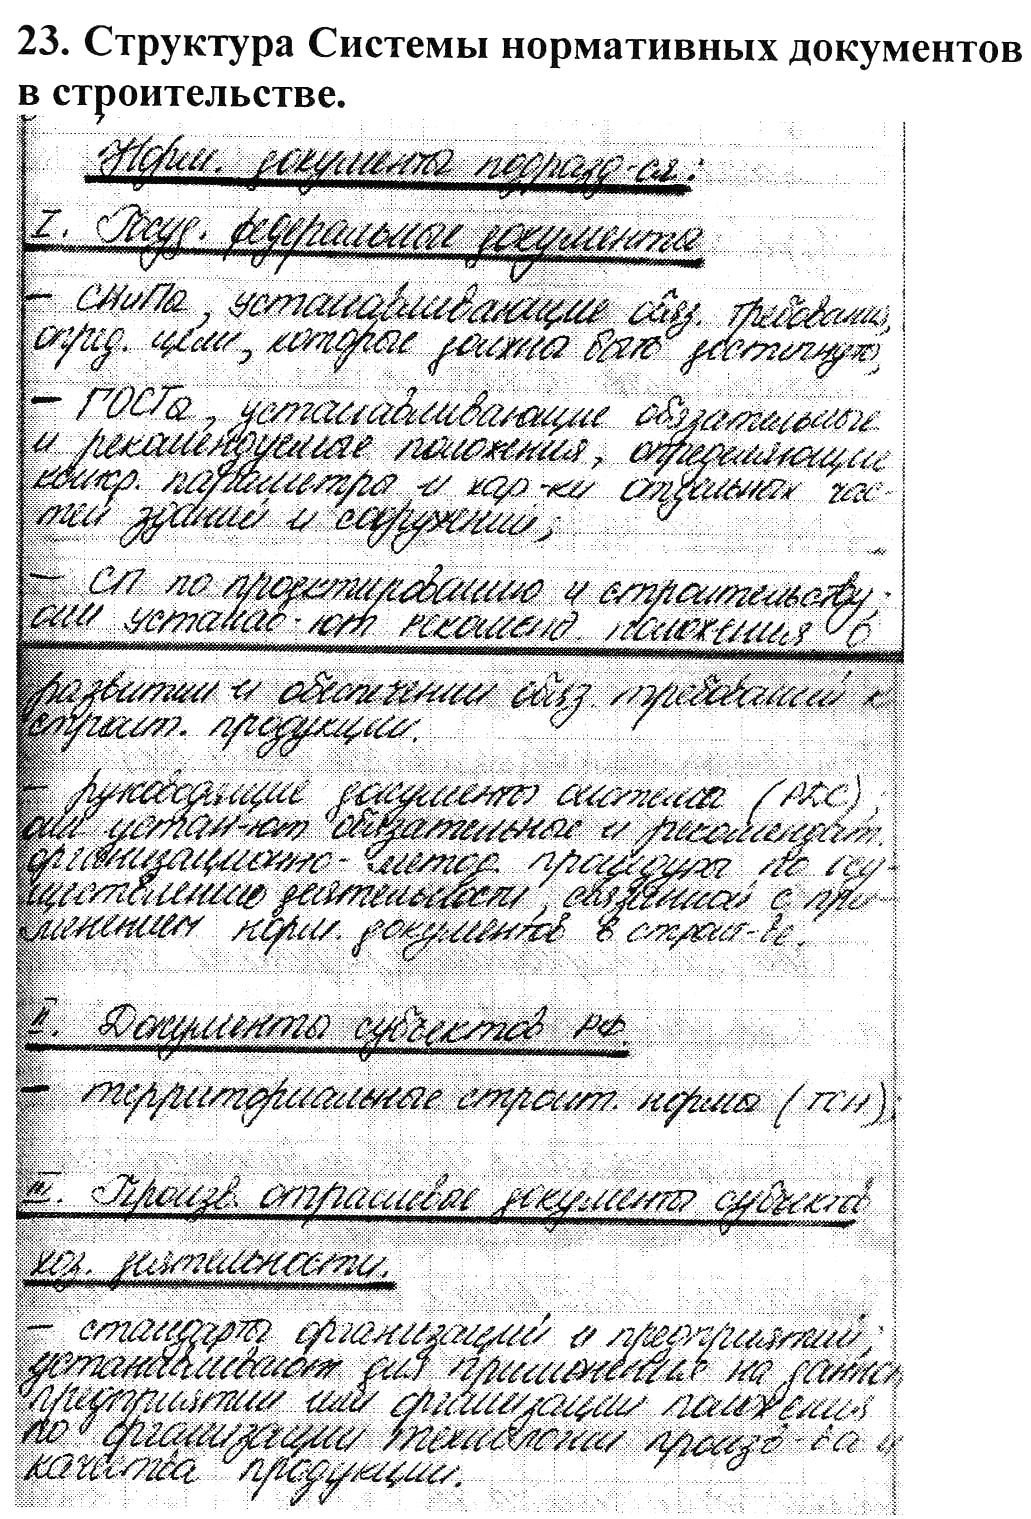 23. Структура Системы нормативных документов
в строительстве.
Норм. документы подразд-ся:
I. Госуд. федеральные документы
– СНиПы, устанавливающие обяз. требования,
опред. цели, которые должны быть достигнуты;
– ГОСТы, устанавливающие обязательные
и рекомендуемые положения, определяющие
конкр. параметры и хар-ки отдельных час-
тей зданий и сооружений;
– СП по проектированию и строительству;
они устанав-ют рекоменд. положения в
развитии и обеспечении обяз. требований к
строит. продукции.
– руководящие документы системы (РДС);
они устан-ют обязательные и рекомендат.
организационно-метод. процедуры по осу-
ществлению деятельности, связанной с при-
менением норм. документов в строит-ве.
II. Документы субъектов РФ.
– территориальные строит. нормы (ТСН);
III. Произв. отраслевые документы субъектов
хоз. деятельности.
– стандарты организаций и предприятий;
устанавливают для применения на данном
предприятии или организации положения
по организации технологии произв-ва и
качества продукции.